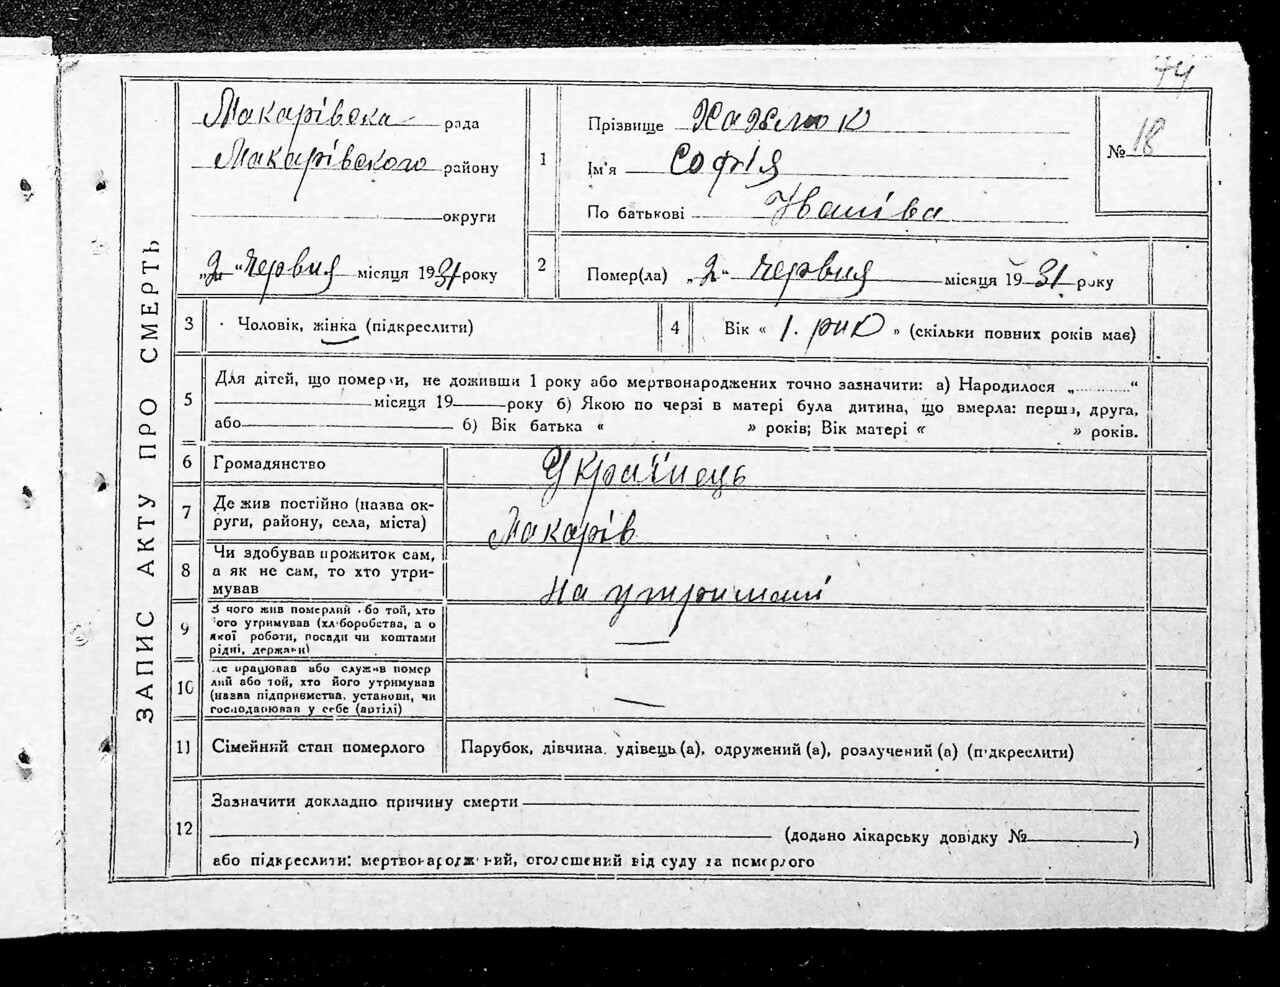 74
ЗАПИС АКТУ ПРО СМЕРТЬ
Макарівска рада
Макарівского району
округи
„2“ червня місяця 1931 року
1
Прізвище
Ім'я Софія
По батькові Іванівна
№ 18
2
Помер(ла) „2“ червня місяця 1931 року
3
Чоловік, жінка (підкреслити)
4
Вік « 1. рик » (скільки повних років має)
5
Для дітей, що померли, не доживши 1 року або мертвонароджених точно зазначити: а) Народилося „ “
місяця 19 року б) Якою по черзі в матері була дитина, що вмерла: перша, друга,
або б) Вік батька « » років; Вік матері « » років.
6
Громадянство
Українець
7
Де жив постійно (назва ок-
руги, району, села, міста)
Макарів
8
Чи здобував прожиток сам,
а як не сам, то хто утри-
мував
на утримані
9
З чого жив померлий або той, хто
його утримував (хліборобства, а о
якої роботи, посади чи коштами
рідні, держави)
—
10
Де працював або служив помер
лий або той, хто його утримував
(назва підприємства, установи, чи
господарював у себе (артілі)
—
11
Сімейний стан померлого
Парубок, дівчина, удівець (а), одружений (а), розлучений (а) (підкреслити)
12
Зазначити докладно причину смерти
(додано лікарську довідку № )
або підкреслити: мертвонароджений, оголошений від суду за померлого